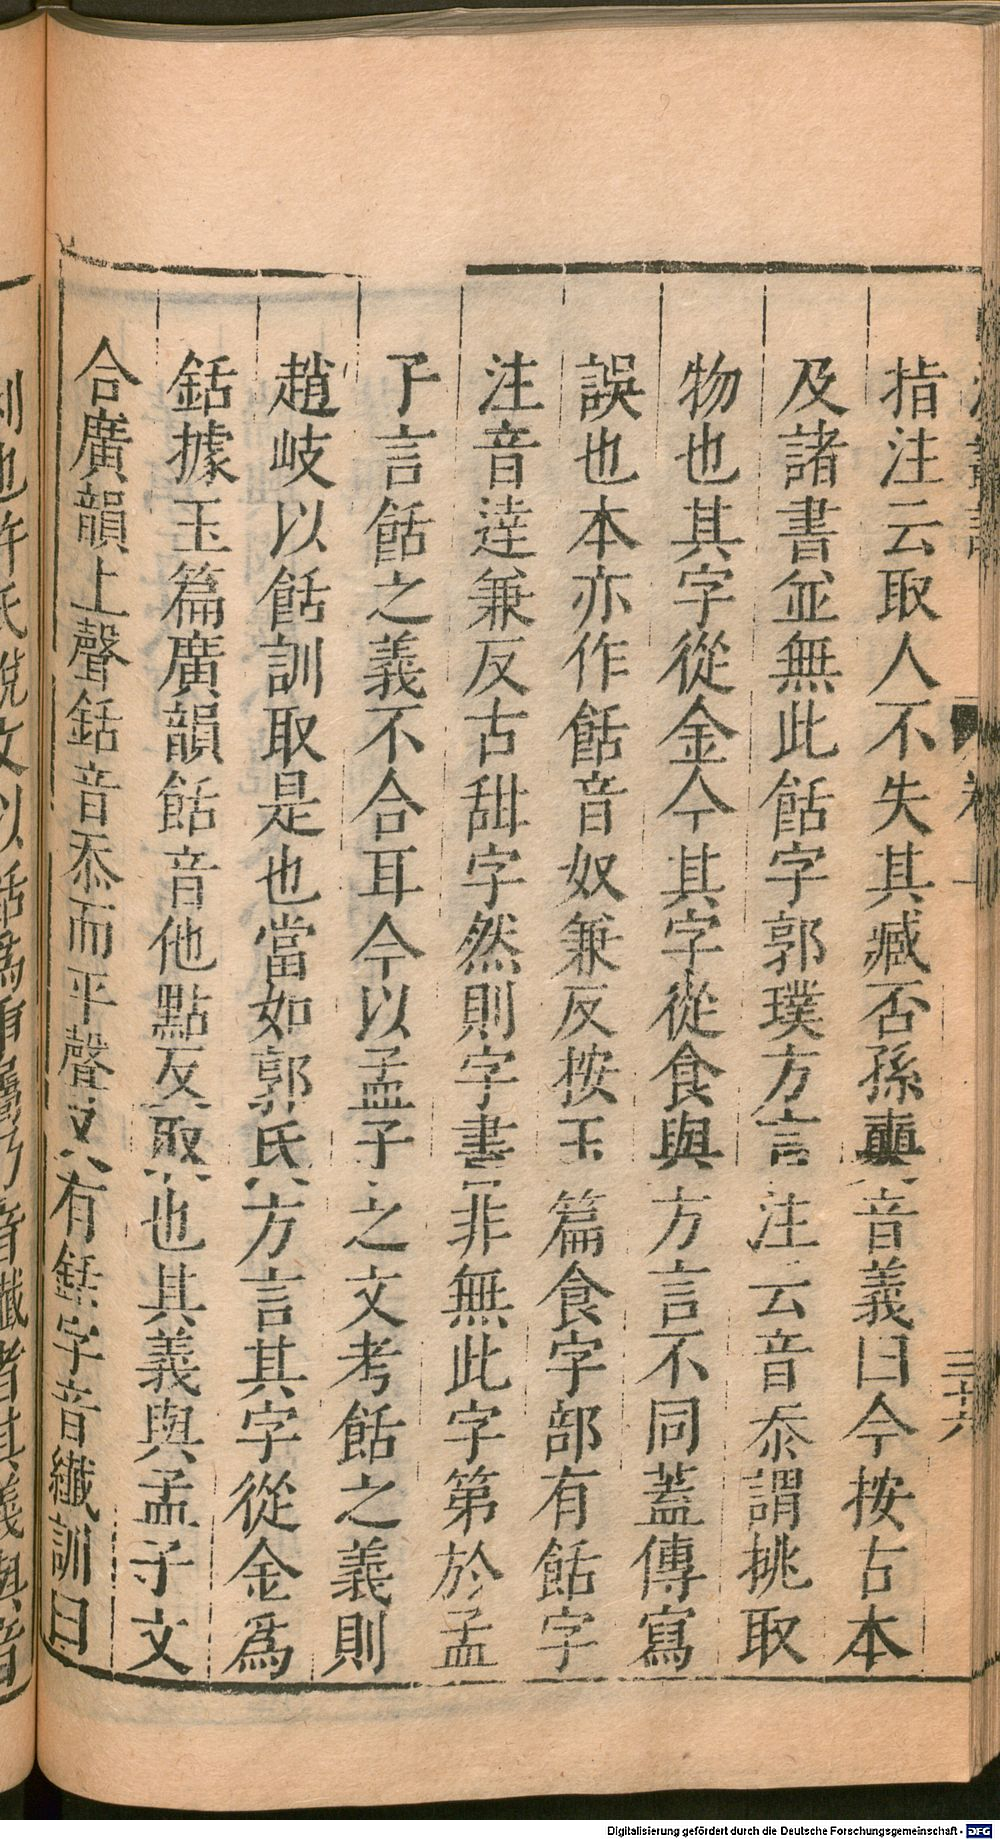 指注云取人不失其臧否孫奭音義曰今按古本
及諸書並無此餂字郭璞方言注云音忝謂挑取
物也其字從金今其字從食與方言不同蓋傳寫
誤也本亦作餂音奴兼反按玉篇食字部有餂字
注音達兼反古甜字然則字書非無此字第於孟
子言餂之義不合耳今以孟子之文考餂之義則
趙岐以餂訓取是也當如郭氏方言其字從金為
銛據玉篇廣韻餂音他點反取也其義與孟子文
合廣韻上聲銛音忝而平聲又有銛字音纖訓曰
卷一
三十六
Digitalisierung gefördert durch die Deutsche Forschungsgemeinschaft - DFG